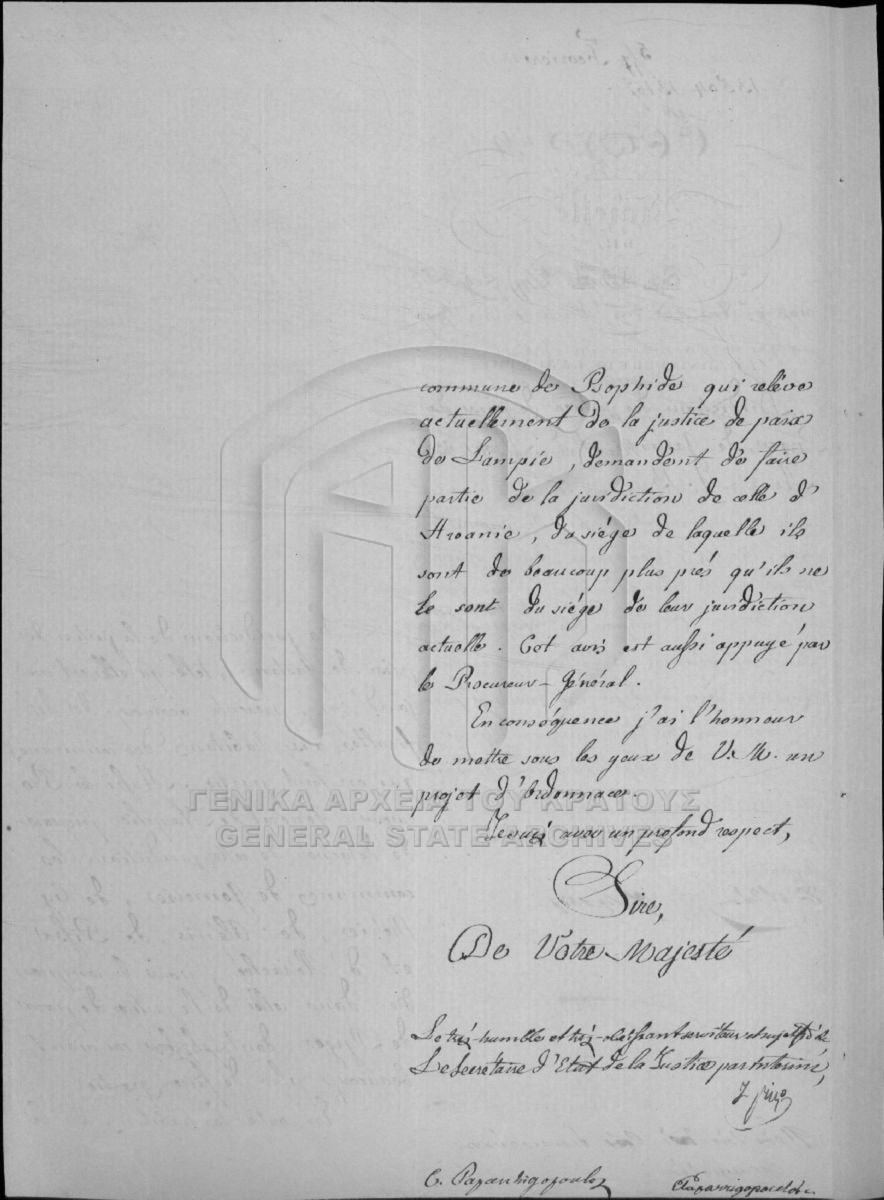 commune de Psophide qui relève
actuellement de la justice de paix
de Lampie, demandent de faire
partie de la juridiction de celle d'
Aroanie, du siége de laquelle ils
sont de beaucoup plus prés qu'ils ne
le sont du siége de leur juridiction
actuelle. Cet avis est aussi appuyé par
le Procureur-Général.
En conséquence j'ai l'honneur
de mettre sous les yeux de V. M. un
projet d'Ordonnance.
ΓΕΝΙΚΑ ΑΡΧΕΙΑ ΤΟΥ ΚΡΑΤΟΥΣ
GENERAL STATE ARCHIVES
Je suis avec un profond respect,
Sire,
De Votre Majesté
Le très-humble et très-obéissant serviteur et sujet
Le Secrétaire d'Etat de la Justice par interim,
C. Paparrigopoulos